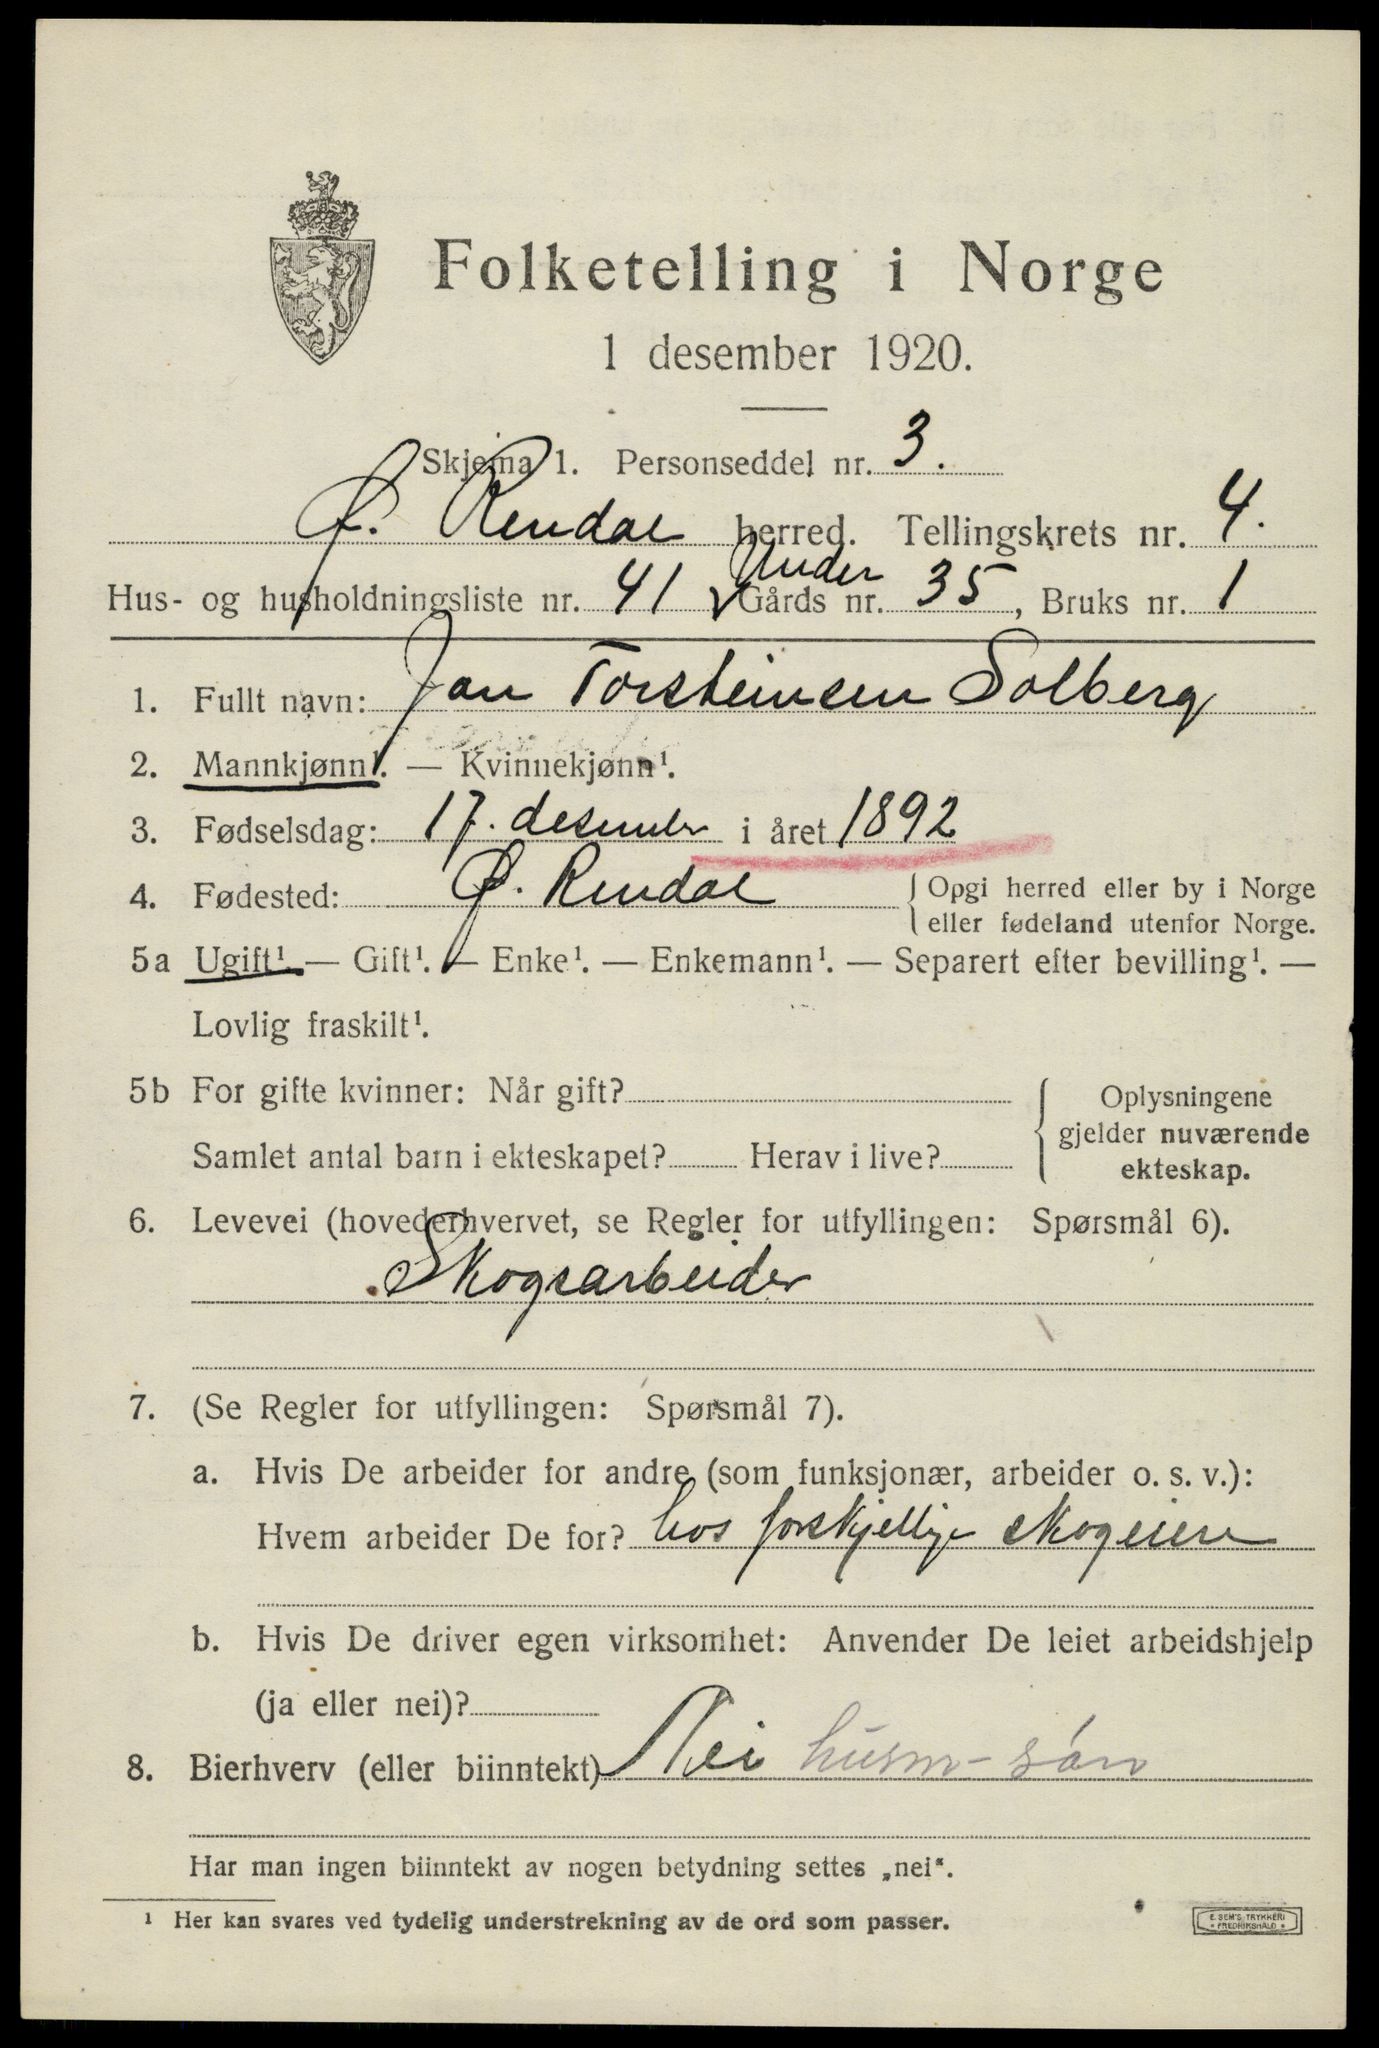 Folketelling i Norge
1 desember 1920.
Skjema 1. Personseddel nr. 3.
Ø. Rendal herred. Tellingskrets nr. 4.
Under
Hus- og husholdningsliste nr. 41 Gårds nr. 35, Bruks nr. 1
1. Fullt navn: Jon Torsteinsen Solberg
2. Mannkjønn¹. — Kvinnekjønn¹.
3. Fødselsdag: 17. desember i året 1892
4. Fødested: Ø. Rendal { Opgi herred eller by i Norge
eller fødeland utenfor Norge.
5a Ugift¹. — Gift¹. — Enke¹. — Enkemann¹. — Separert efter bevilling¹. —
Lovlig fraskilt¹.
5b For gifte kvinner: Når gift?
Samlet antal barn i ekteskapet? Herav i live?
{ Oplysningene
gjelder nuværende
ekteskap.
6. Levevei (hovederhvervet, se Regler for utfyllingen: Spørsmål 6).
Skogsarbeider
7. (Se Regler for utfyllingen: Spørsmål 7).
a. Hvis De arbeider for andre (som funksjonær, arbeider o. s. v.):
Hvem arbeider De for? hos forskjellige skogeiere
b. Hvis De driver egen virksomhet: Anvender De leiet arbeidshjelp
(ja eller nei)?
8. Bierhverv (eller biinntekt) Nei husm-søn
Har man ingen biinntekt av nogen betydning settes „nei“.
¹ Her kan svares ved tydelig understrekning av de ord som passer.
E. SEM'S TRYKKERI
FREDRIKSHALD